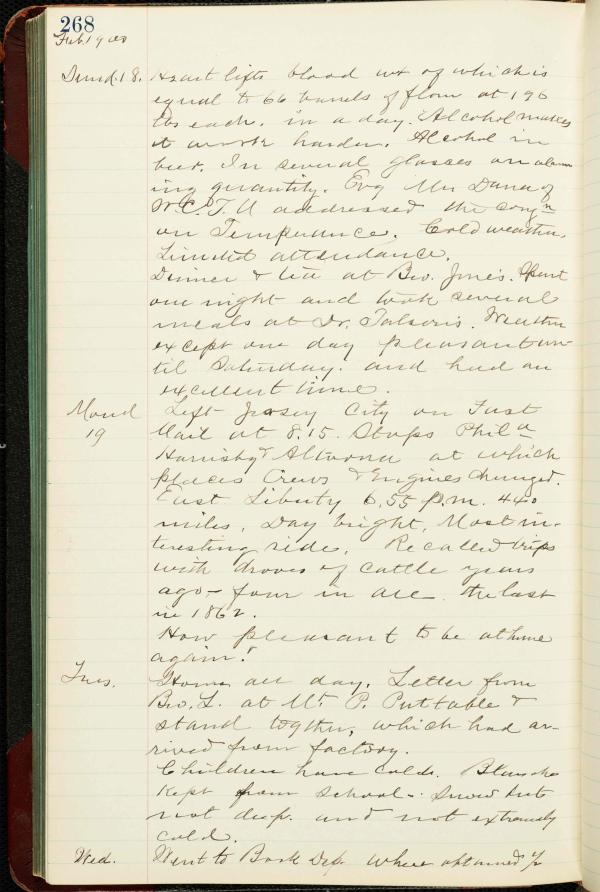 268
Feb. 1900
Sund. 18. Heart lifts blood wt of which is
equal to 66 barrels of flour at 196
lbs each. in a day. Alcohol makes
it work harder. Alcohol in
beer. In several glasses an alarm
ing quantity. Evg Mrs Dana of
W.C.T.U addressed the congn
on Temperance. Cold weather.
Limited attendance.
Dinner & tea at Bro. Jones. Spent
one night and took several
meals at Dr. Weather
except one day pleasant un-
til Saturday. and had an
excellent time.
Mond 19 Left Jersey City on Fast
Mail at 8.15. Stops Phila
Harrisbg & Altoona at which
places Crews & Engines changed.
East Liberty 6.55 p.m. 440
miles. Day bright. Most in-
teresting ride. Recalled trips
with droves of cattle years
ago - four in all. the last
in 1862.
How pleasant to be at home
again!
Tues. Home all day. Letter from
Bro. L. at Mt. P. Put table &
stand together, which had ar-
rived from factory.
Children have colds. Blanche
kept from school. Snow but
not deep. and not extremely
cold.
Wed. Went to Book Dep. where obtained